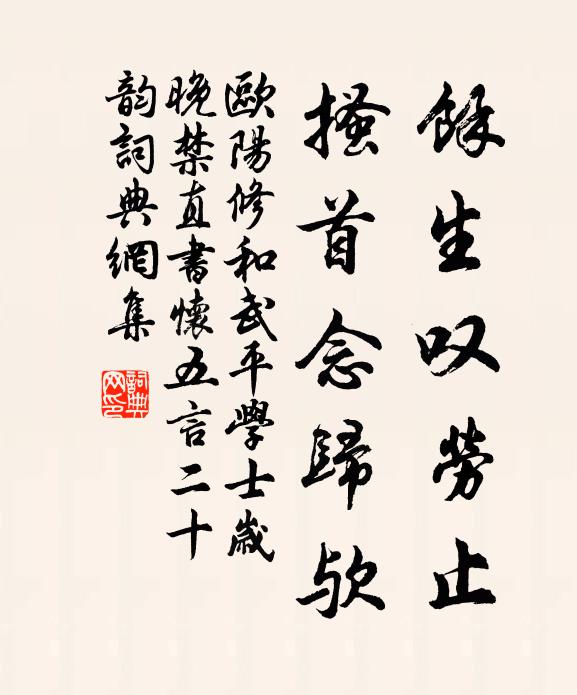 餘生叹勞止
搔首念歸欤
歐陽修和武平學士歲
晚禁直書懷五言二十
韵詞典網集
詞典
网印